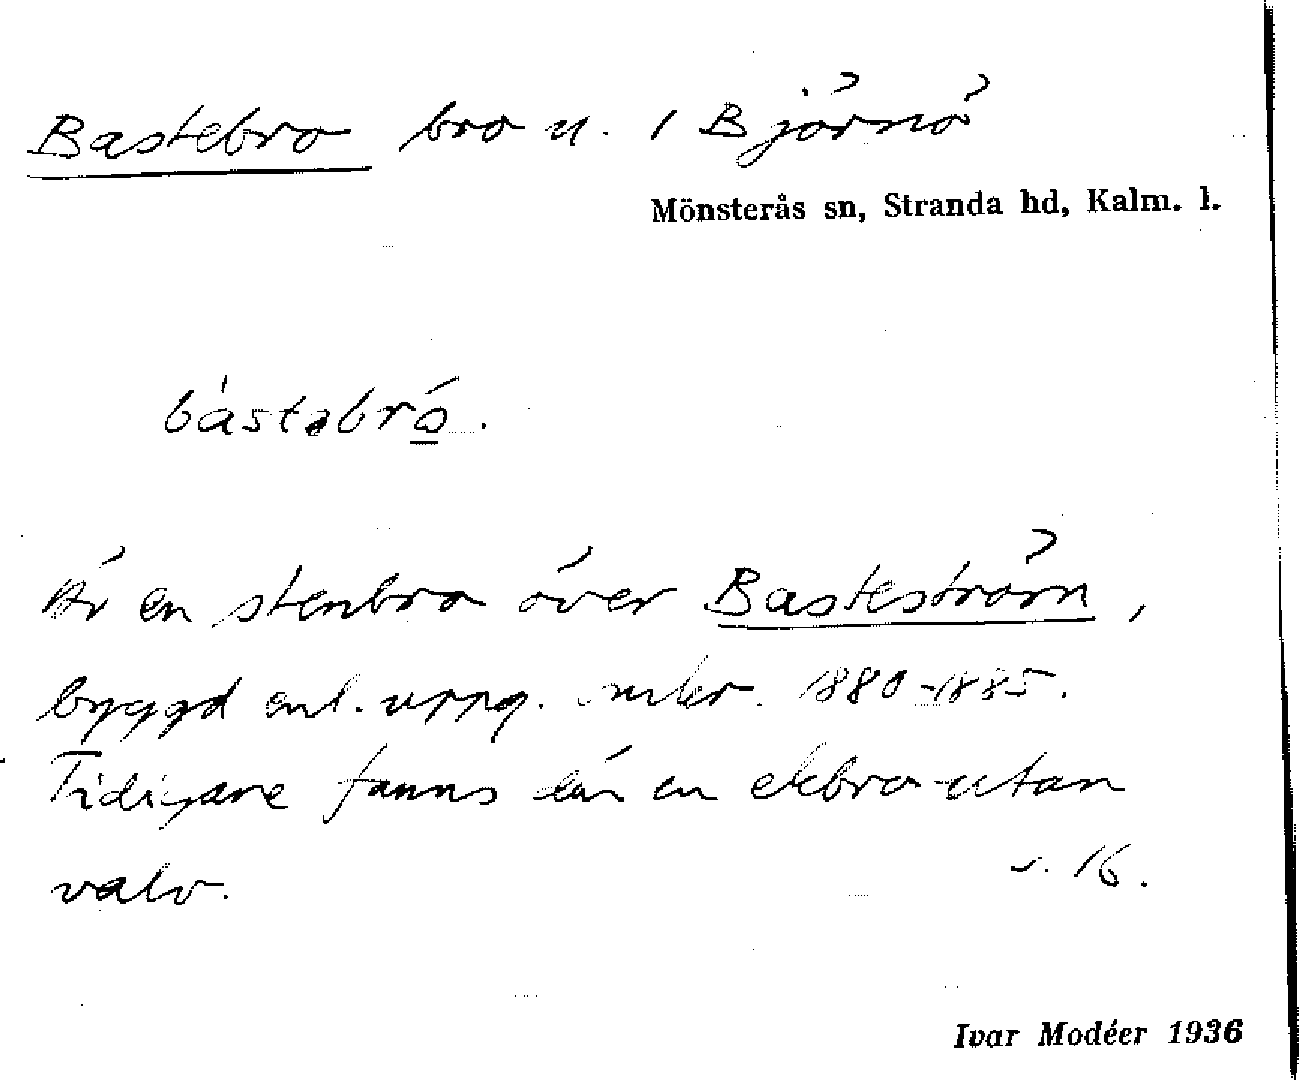 Bastebro bro u. 1 Björnö
Mönsterås sn, Stranda hd, Kalm. l.
bástəbró.
Är en stenbro över Basteström,
byggd enl. uppg. omkr. 1880-1885.
Tidigare fanns där en ekbro utan
valv. s. 16.
Ivar Modéer 1936